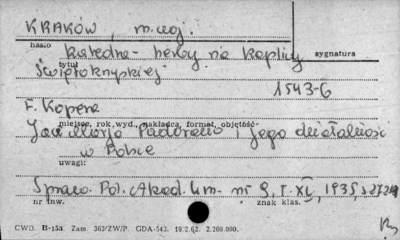 KRAKÓW, m. woj.
hasło
katedra - herby na kaplicy
sygnatura
tytuł
Świętokrzyskiej
1543-6
F. Kopera
miejsce, rok wyd., nakładca, format, objętość-
Jan Maria Padovano i jego działalność
w Polsce
uwagi:
Spraw. Pol. Akad. Um. nr 8, t. XL, 1935, s.
nr inw.
znak klas.
CWD. B-15a. Zam. 363/ZW/P. GDA-543. 19.2.62. 2.260.000.